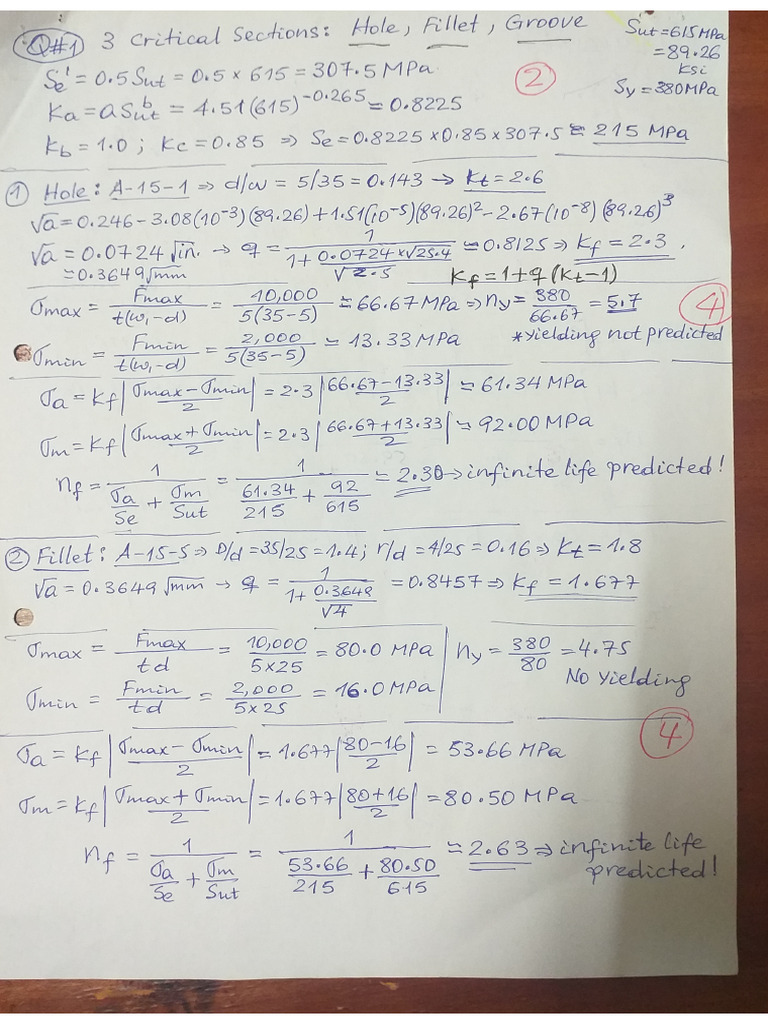 Q#1 3 Critical Sections: Hole, Fillet, Groove
Sut=615MPa
=89.26
Ksi
Sy=380MPa
Se' = 0.5Sut = 0.5 × 615 = 307.5 MPa
2
Ka = aSut^b = 4.51(615)^-0.265 ≈ 0.8225
kb = 1.0 ; Kc = 0.85 ⇒ Se = 0.8225×0.85×307.5 ≈ 215 MPa
① Hole: A-15-1 ⇒ d/w = 5/35 = 0.143 → Kt = 2.6
√a = 0.246 - 3.08(10^-3)(89.26) + 1.51(10^-5)(89.26)^2 - 2.67(10^-8)(89.26)^3
√a = 0.0724 √in. → q = 1/(1 + 0.0724×√25.4/√2.5) ≈ 0.8125 ⇒ Kf = 2.3.
≈ 0.3649 √mm
Kf = 1 + q(Kt-1)
σmax = Fmax/t(w,-d) = 10,000/5(35-5) ≈ 66.67 MPa ⇒ ny = 380/66.67 = 5.7
4
*yielding not predicted
σmin = Fmin/t(w,-d) = 2,000/5(35-5) ≈ 13.33 MPa
σa = Kf |σmax - σmin/2| = 2.3 |66.67-13.33/2| ≈ 61.34 MPa
σm = Kf |σmax + σmin/2| = 2.3 |66.67+13.33/2| ≈ 92.00 MPa
nf = 1/(σa/Se + σm/Sut) = 1/(61.34/215 + 92/615) ≈ 2.30 → infinite life predicted!
② Fillet: A-15-5 ⇒ D/d = 35/25 = 1.4 ; r/d = 4/25 = 0.16 ⇒ Kt = 1.8
√a = 0.3649 √mm → q = 1/(1 + 0.3648/√4) = 0.8457 ⇒ Kf = 1.677
σmax = Fmax/td = 10,000/5×25 = 80.0 MPa
ny = 380/80 = 4.75
No Yielding
σmin = Fmin/td = 2,000/5×25 = 16.0 MPa
4
σa = Kf |σmax - σmin/2| = 1.677 |80-16/2| = 53.66 MPa
σm = Kf |σmax + σmin/2| = 1.677 |80+16/2| = 80.50 MPa
nf = 1/(σa/Se + σm/Sut) = 1/(53.66/215 + 80.50/615) ≈ 2.63 ⇒ infinite life
predicted!